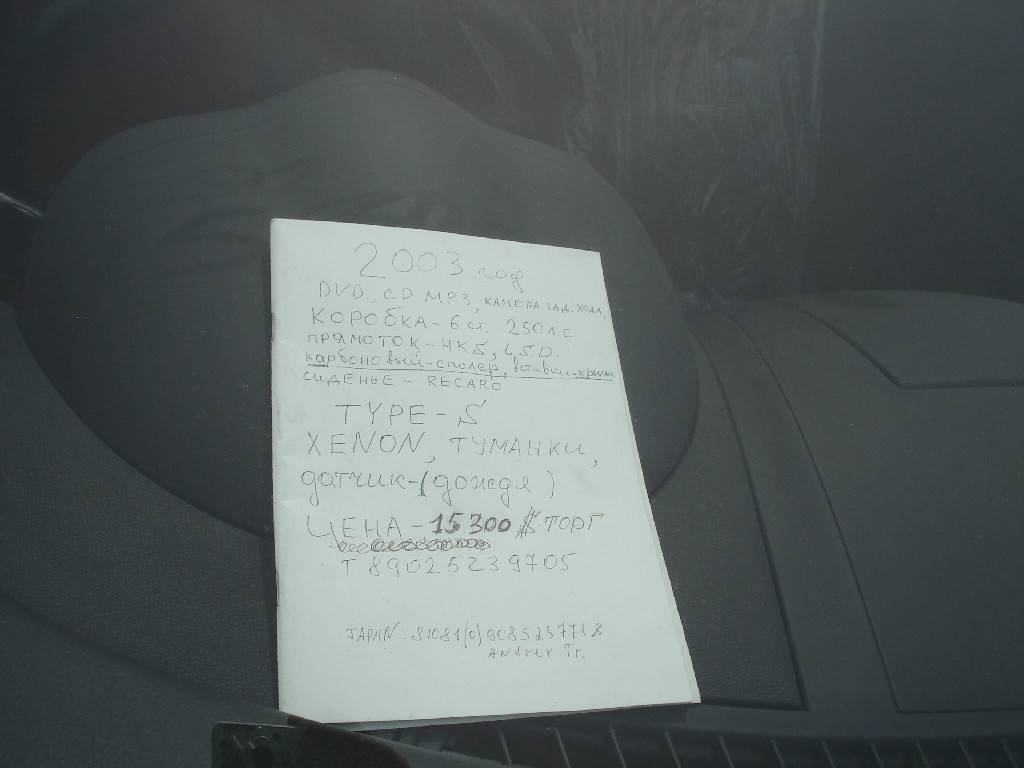 2003 год
DVD, CD MP3, КАМЕРА ЗАД. ХОДА,
КОРОБКА - 6 ст. 250 л с
ПРЯМОТОК - HKS, 4,5 D.
карбоновый - сполер,
СИДЕНЬЕ - RECARO
TYPE - S
XENON, ТУМАНКИ,
датчик - (дождя)
ЦЕНА - 15300 $ ТОРГ
Т 89025239705
JAPAN 81081(0)9085237718
Andrey Tr.